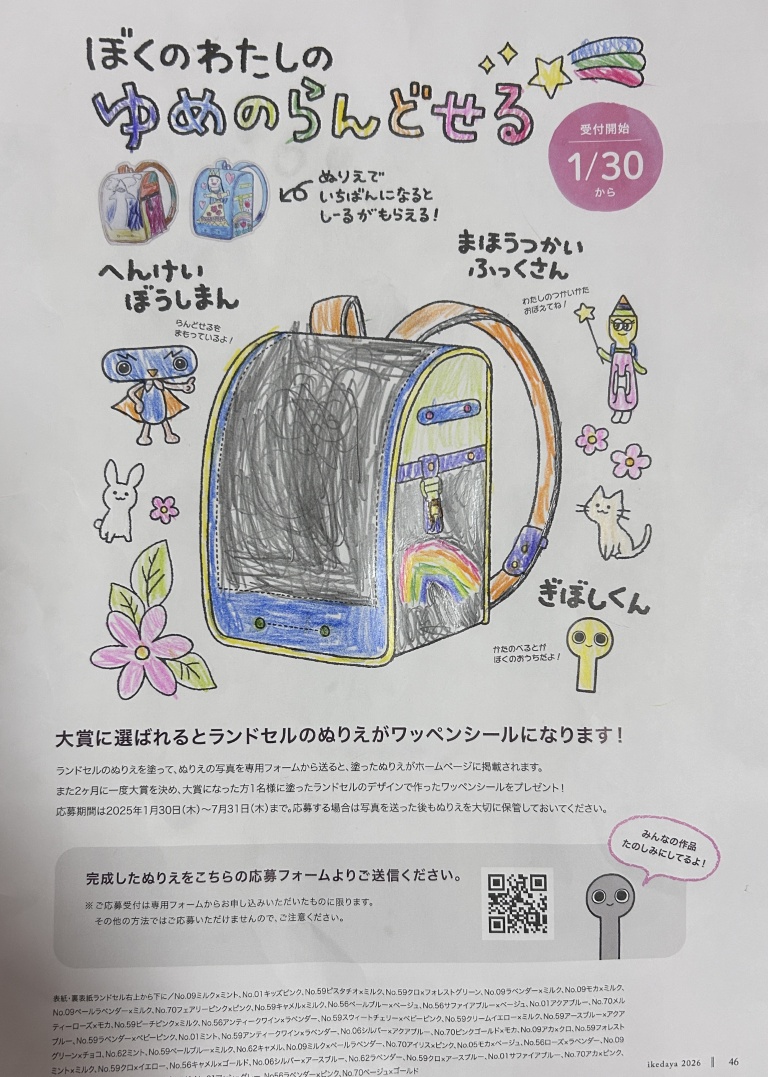 ぼくのわたしの
ゆめのらんどせる
受付開始
1/30
から
ぬりえで
いちばんになると
しーるがもらえる!
まほうつかい
ふっくさん
わたしのつかいかた
おぼえてね!
へんけい
ぼうしまん
らんどせるを
まもっているよ!
ぎぼしくん
かたのべるとが
ぼくのおうちだよ!
大賞に選ばれるとランドセルのぬりえがワッペンシールになります!
ランドセルのぬりえを塗って、ぬりえの写真を専用フォームから送ると、塗ったぬりえがホームページに掲載されます。
また2ヶ月に一度大賞を決め、大賞になった方1名様に塗ったランドセルのデザインで作ったワッペンシールをプレゼント!
応募期間は2025年1月30日(木)〜7月31日(木)まで。応募する場合は写真を送った後もぬりえを大切に保管しておいてください。
みんなの作品
たのしみにしてるよ!
完成したぬりえをこちらの応募フォームよりご送信ください。
※ご応募受付は専用フォームからお申し込みいただいたものに限ります。
その他の方法ではご応募いただけませんので、ご注意ください。
表紙・裏表紙ランドセル右上から下に/No.09ミルク×ミント、No.01キッズピンク、No.59ピスタチオ×ミルク、No.59クロ×フォレストグリーン、No.09ラベンダー×ミルク、No.09モカ×ミルク、
No.09ペールラベンダー×ミルク、No.70フェアリーピンク×ピンク、No.59キャメル×ミルク、No.56ペールブルー×ベージュ、No.56サファイアブルー×ベージュ、No.01アクアブルー、No.70メル
ティーローズ×モカ、No.59ピーチピンク×ミルク、No.56アンティークワイン×ラベンダー、No.59スウィートチェリー×ベビーピンク、No.59クリームイエロー×ミルク、No.59アースブルー×アクア
ブルー、No.59ラベンダー×ベビーピンク、No.01ミント、No.59アンティークワイン×ラベンダー、No.06シルバー×アクアブルー、No.70ピンクゴールド×モカ、No.09アカ×クロ、No.59フォレスト
グリーン×チョコ、No.62ミント、No.59ペールブルー×ミルク、No.62キャメル、No.09ミルク×ペールラベンダー、No.70アイリス×ピンク、No.05モカ×ベージュ、No.56ローズ×ラベンダー、No.09
ミント×ミルク、No.59クロ×イエロー、No.56キャメル×ゴールド、No.06シルバー×アースブルー、No.62ラベンダー、No.59クロ×アースブルー、No.01サファイアブルー、No.70アカ×ピンク、
No.56ラベンダー×ピンク、No.70ベージュ×ゴールド
ikedaya 2026 46